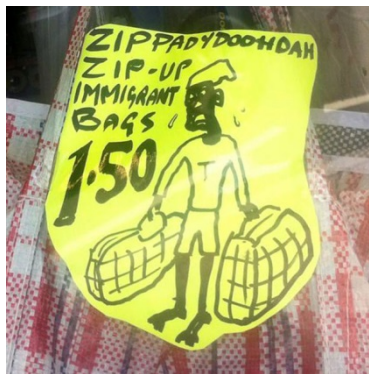 ZIPPADYDOOHDAH
ZIP-UP
IMMIGRANT
BAGS
1.50
T